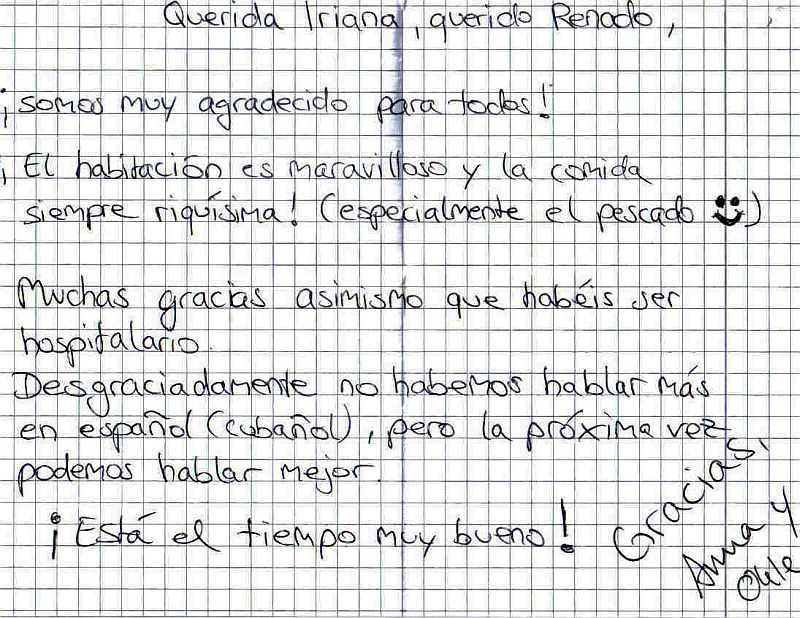 Querida Iriana, querido Renado,
¡somos muy agradecido para todos!
¡El habitación es maravilloso y la comida
siempre riquísima! (especialmente el pescado )
Muchas gracias asimismo que habéis ser
hospitalario.
Desgraciadamente no habemos hablar más
en español (cubañol), pero la próxima vez
podemos hablar mejor.
¡Está el tiempo muy bueno!
Gracias,
Anna y